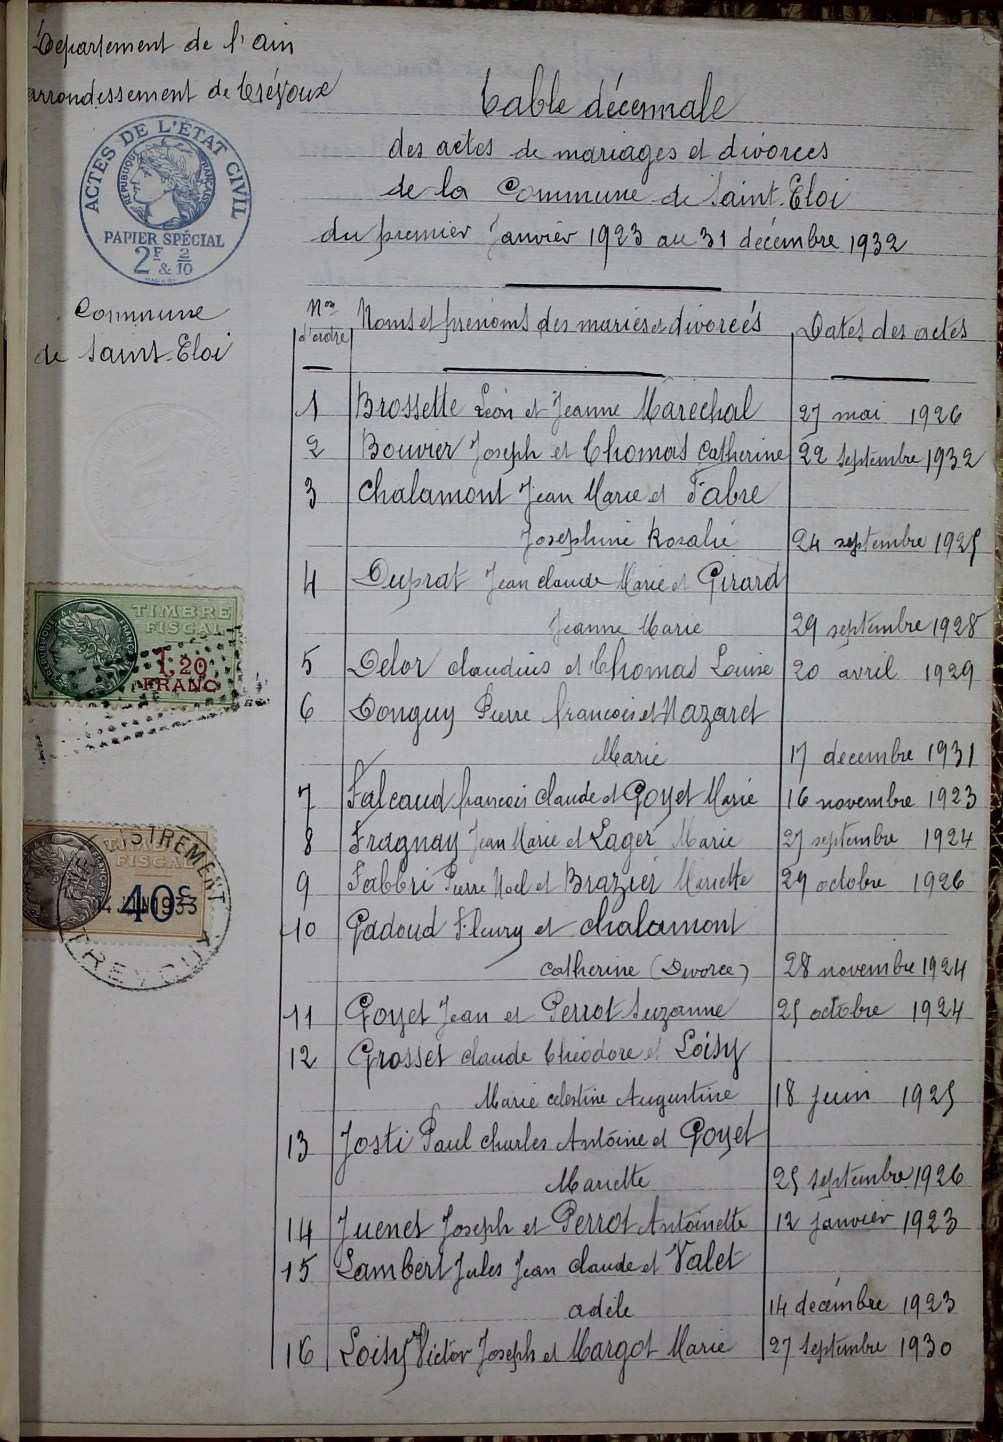 Departement de l'ain
arrondissement de Trévoux
ACTES DE L'ÉTAT CIVIL
RÉPUBLIQUE FRANÇAISE
PAPIER SPÉCIAL
2F & 2/10
Commune
de Saint-Eloi
TIMBRE
FISCAL
1,20
FRANC
TIMBRE
FISCAL
40c
14 JUIN 1933
TREVOUX
Table décennale
des actes de mariages et divorces
de la Commune de Saint-Eloi
du premier Janvier 1923 au 31 décembre 1932
Nos d'ordre Noms et prénoms des mariés et divorcés Dates des actes
1 Brossette Léon et Jeanne Maréchal 27 mai 1926
2 Bouvier Joseph et Thomas Catherine 22 septembre 1932
3 Chalamont Jean Marie et Fabre
Joséphine Rosalie 24 septembre 1925
4 Duprat Jean claude Marie et Girard
Jeanne Marie 29 septembre 1928
5 Delor claudius et Thomas Louise 20 avril 1929
6 Donguy Pierre françois et Nazaret
Marie 17 decembre 1931
7 Falcaud françois claude et Goyet Marie 16 novembre 1923
8 Fragnay Jean Marie et Lager Marie 27 septembre 1924
9 Fabbri Pierre Noel et Brazier Mariette 29 octobre 1926
10 Gadoud Fleury et chalamont
catherine (Divorce) 28 novembre 1924
11 Goyet Jean et Perrot Suzanne 25 octobre 1924
12 Grosset claude Théodore et Loisy
Marie célestine Augustine 18 juin 1925
13 Josti Paul charles Antoine et Goyet
Mariette 25 septembre 1926
14 Juenet Joseph et Perrot Antoinette 12 janvier 1923
15 Lambert Jules Jean claude et Valet
adèle 14 décembre 1923
16 Loisy Victor Joseph et Margot Marie 27 septembre 1930